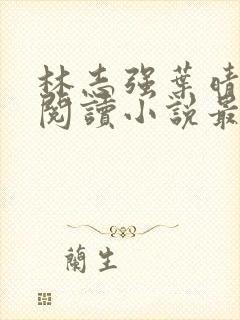 林志强葉晴
閱讀小說最
蘭生